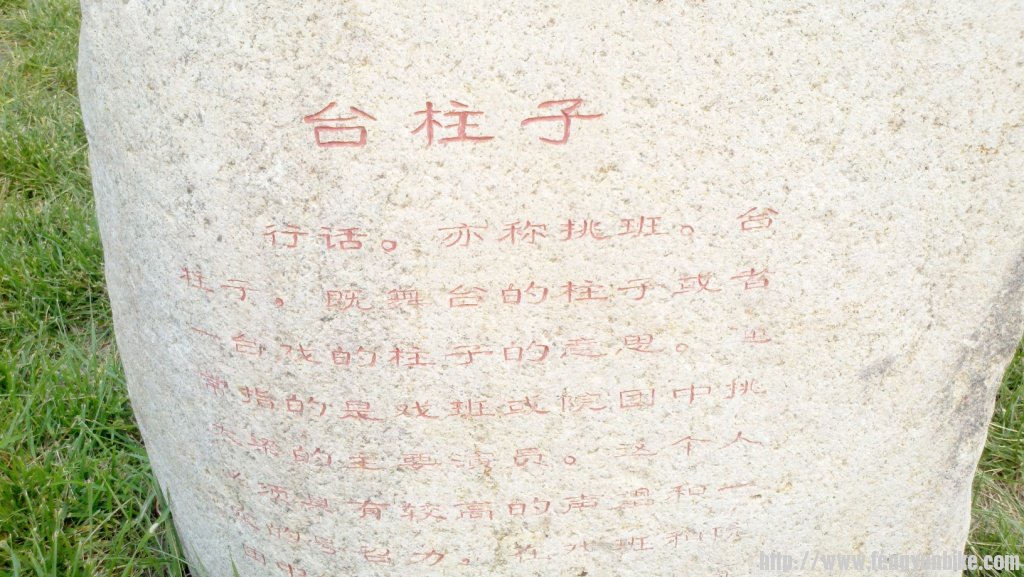 台柱子
行话。亦称挑班。台
柱子，既舞台的柱子或者
一台戏的柱子的意思。通
常指的是戏班或院团中挑
大梁的主要演员。这个人
必须具有较高的声温和一
定的号召力，在戏班和院
团中
http://www.fengyunhike.com